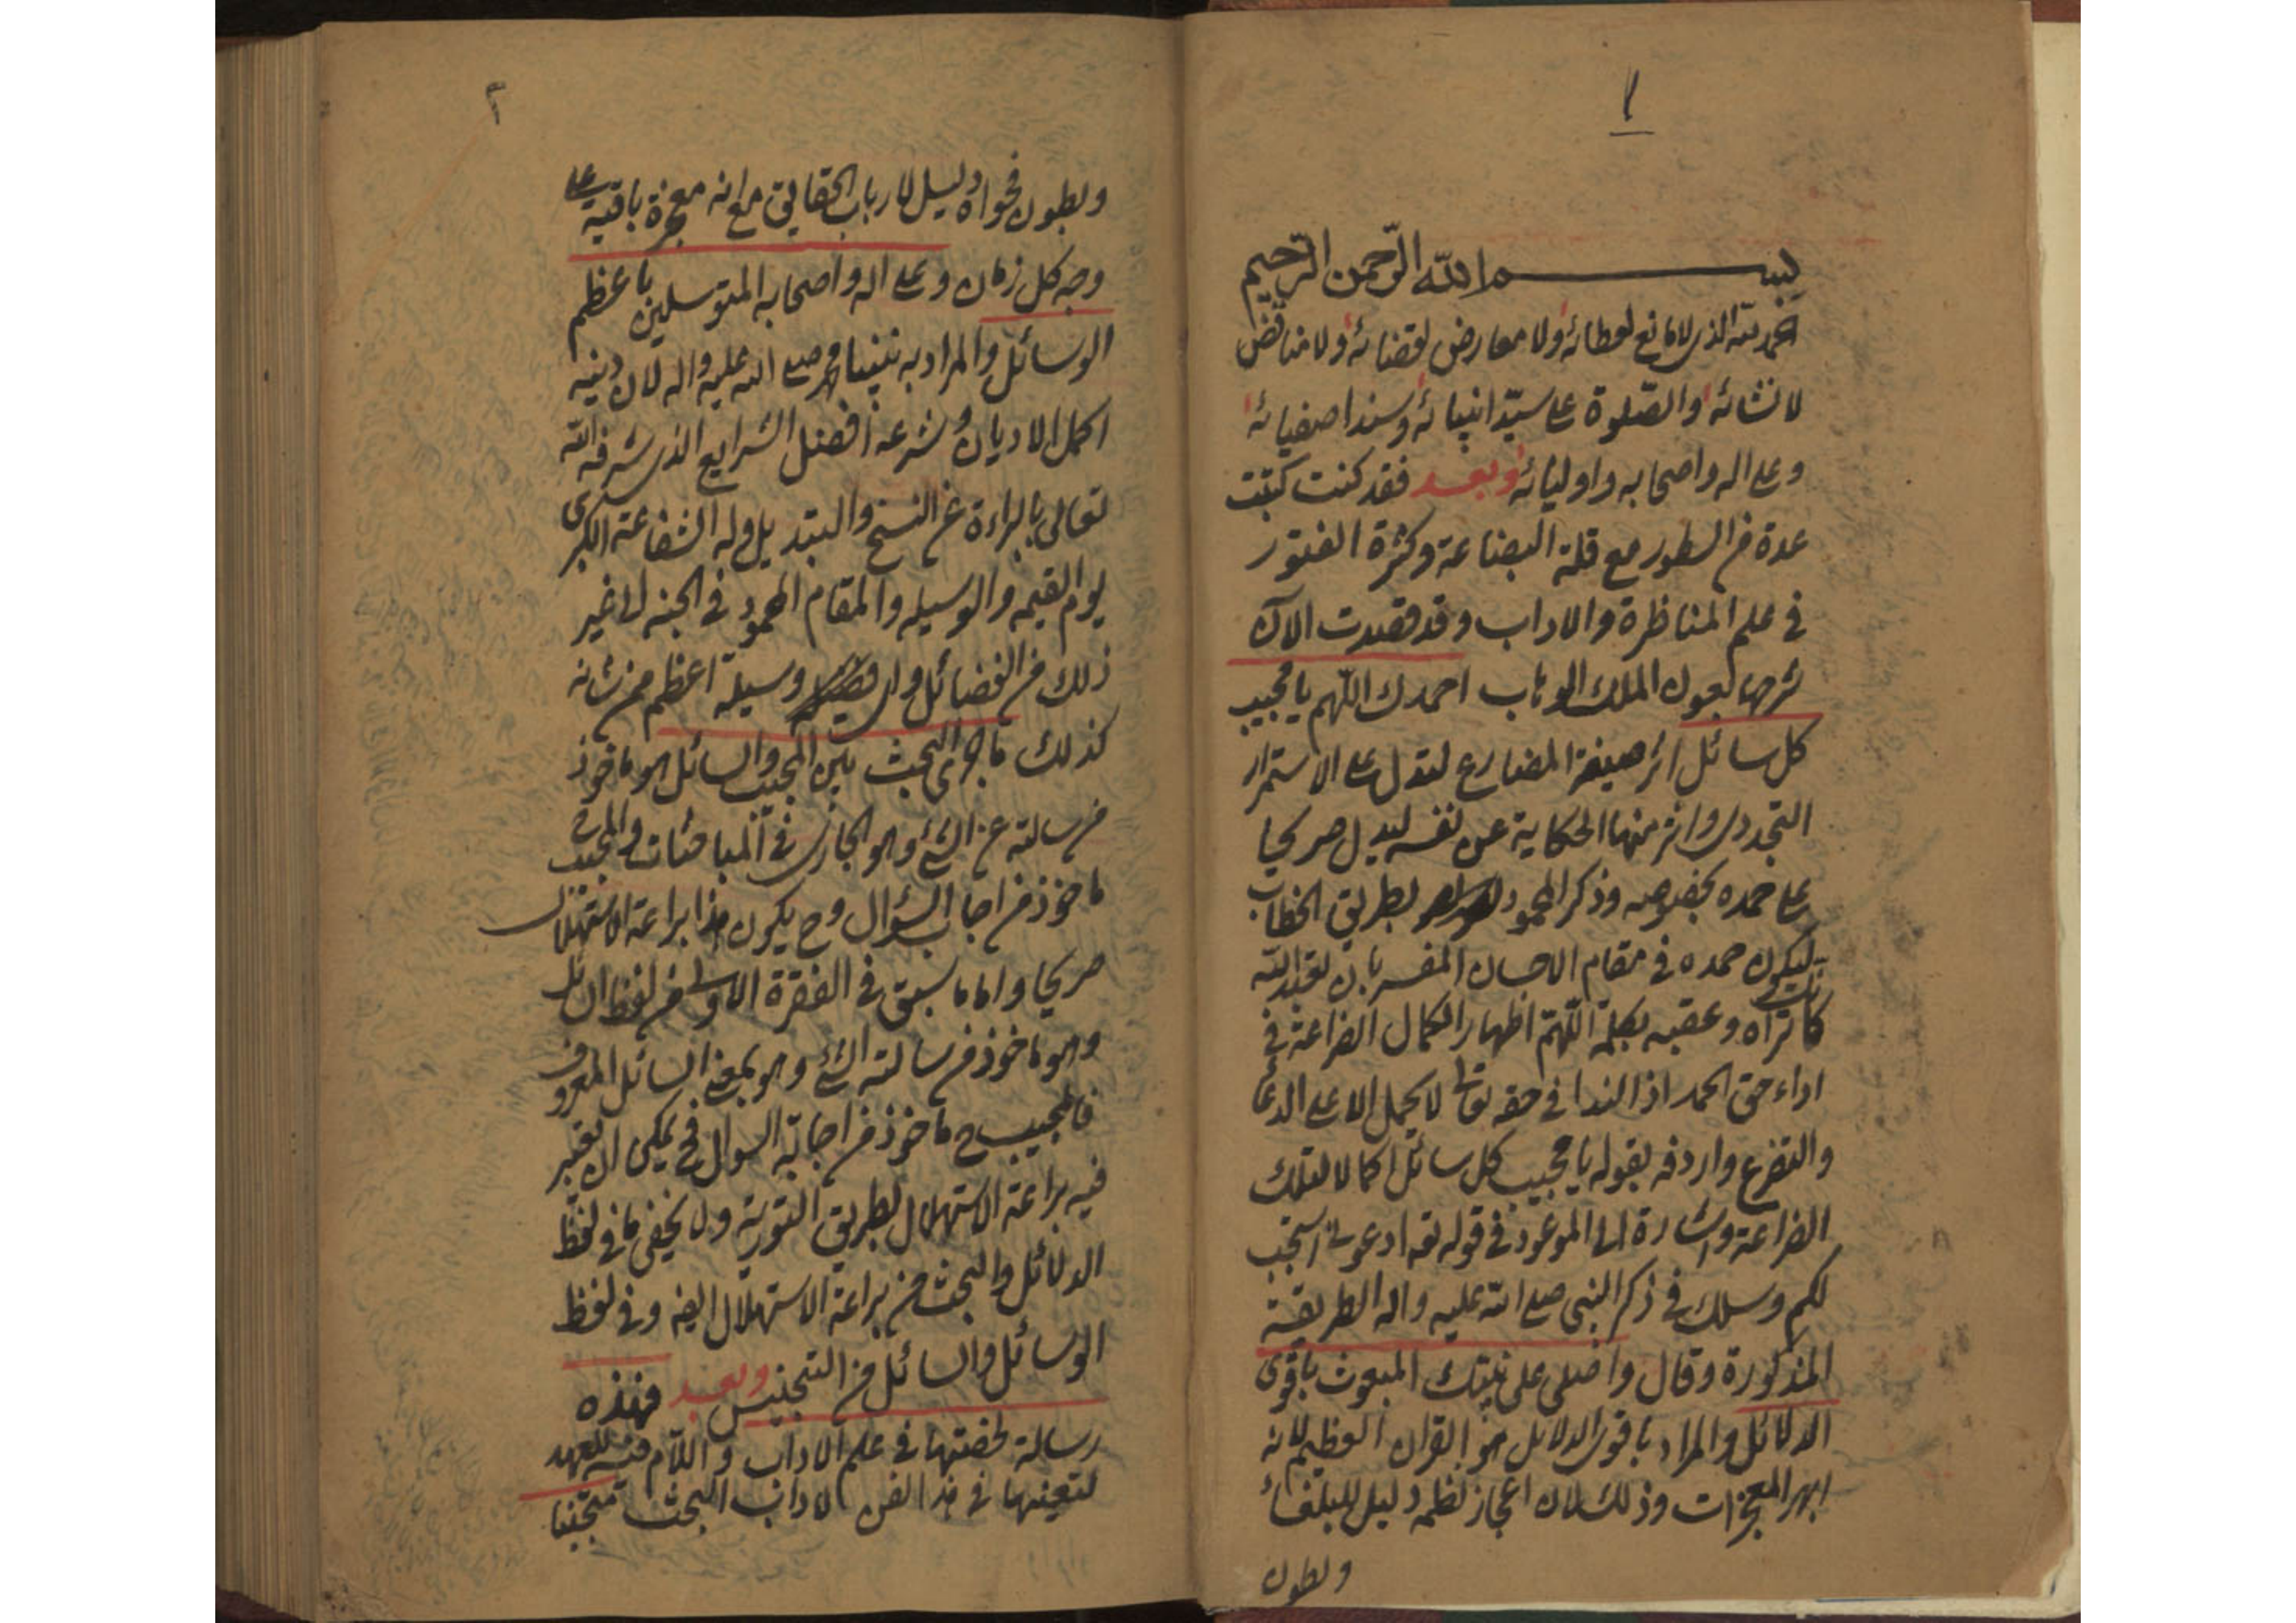 ١
بسم الله الرحمن الرحيم
الحمد لله الذى لا مانع لعطائه ولا معارض لقضائه ولا مناقض
لانشائه والصلوة على سيد انبيائه وسند اصفيائه
وعلى اله واصحابه واوليائه وبعد فقد كنت كتبت
عدة من السطور مع قلة البضاعة وكثرة الفتور
فى علم المناظرة والاداب وقد قصدت الآن
شرحها بعون الملك الوهاب احمدك اللهم يا مجيب
كل سائل اثر صيغة المضارع لتدل على الاستمرار
التجددى واثر منها الحكاية عن نفسه ليدل صريحا
على حمده بخصوصه وذكر المحمود بطريق الخطاب
ليكون حمده فى مقام الاحسان المفسر بان تعبد الله
كانك تراه وعقبه بكلمة اللهم اظهارا لكمال الضراعة فى
اداء حق الحمد اذ الندا فى حقه تعالى لا يحمل الا على الدعا
والتضرع واردفه بقوله يا مجيب كل سائل اكمالا لتلك
الضراعة واشارة الى الموعود فى قوله تعه ادعونى استجب
لكم وسلك فى ذكر النبى صلى الله عليه واله الطريقة
المذكورة وقال واصلى على نبيك المبعوث باقوى
الدلائل والمراد باقوى الدلائل هو القران العظيم لانه
ابهر المعجزات وذلك لان اعجاز نظمه دليل للبلغاء
وبطون
٢
وبطون فحواه دليل لارباب الحقائق مع انه معجزة باقية على
وجه كل زمان وعلى اله واصحابه المتوسلين باعظم
الوسائل والمراد به نبينا محمد صلى الله عليه واله لان دينه
اكمل الاديان وشرعه افضل الشرايع الذى شرفه الله
تعالى بالبراءة عن النسخ والتبديل وله الشفاعة الكبرى
يوم القيمه والوسيله والمقام المحمود فى الجنه الى غير
ذلك من الفضائل واى وسيلة اعظم من شانه
كذلك ما جرى البحث بين المجيب والسائل هو ماخوذ
من سالته عن الشئ وهو الجارى فى المباحثات والمجيب
ماخوذ من اجاب السؤال وح يكون هذا براعة الاستهلال
صريحا واما ما سبق فى الفقرة الاولى من لفظ السائل
وهو ماخوذ من سالته الشئ وهو بمعنى السائل المعروف
فالمجيب ح ماخوذ من اجابة السوال فح يمكن ان يعتبر
فيه براعة الاستهلال بطريق التورية ولا يخفى ما فى لفظ
الدلائل والبحث من براعة الاستهلال ايضه وفى لفظ
الوسائل والسائل من التجنيس وبعد فهذه
رسالة لخصتها فى علم الاداب واللام فيه للعهد
لتعينها فى هذا الفن لاداب البحث متجنبا